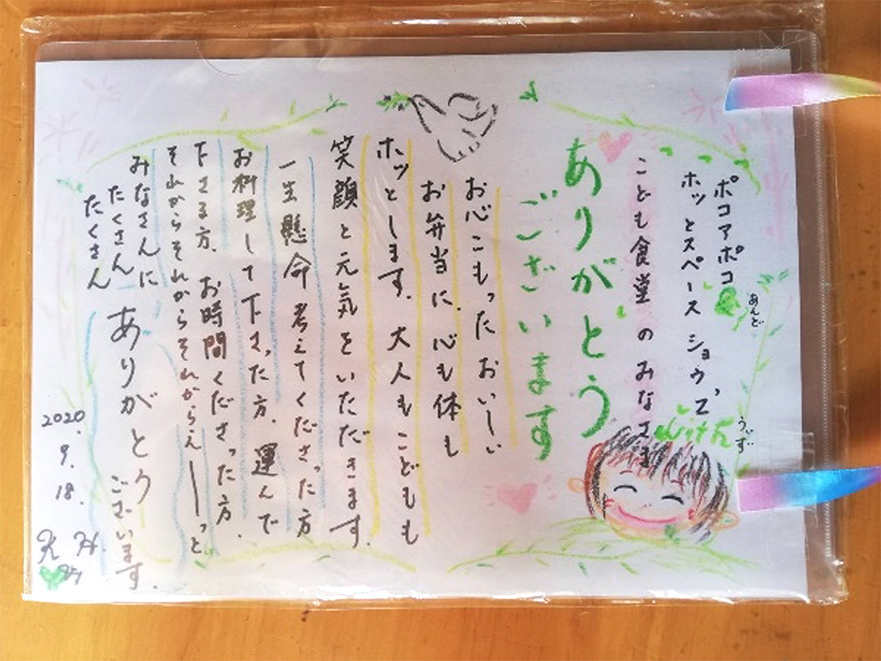 ポコアポコ&
あんど
ホッとスペース ショウ'Z
with
うぃず
こども食堂のみなさま
ありがとう
ございます
お心こもったおいしい
お弁当に、心も体も
ホッとします。大人もこどもも
笑顔と元気をいただきます。
一生懸命考えてくださった方
お料理して下さった方、運んで
下さる方、お時間くださった方、
それからそれからそれからえーっと
みなさんに
たくさん
たくさん
ありがとう
ございます。
2020.
9.
18.
K H.